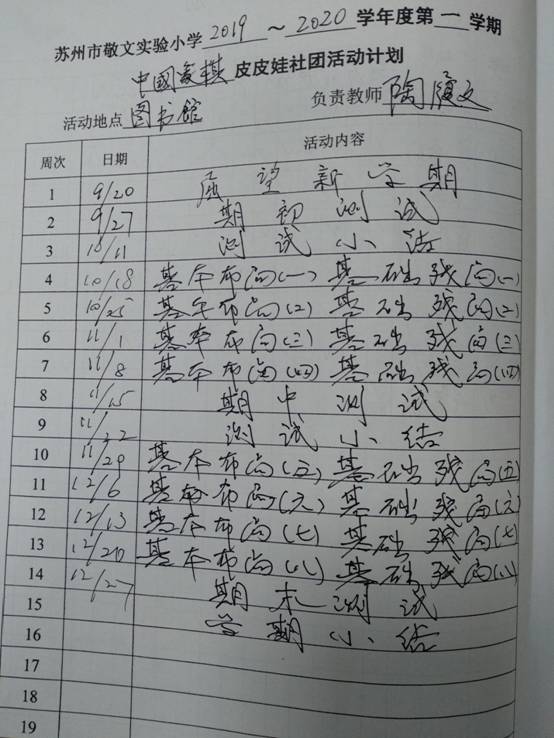 苏州市敬文实验小学2019~2020学年度第一学期
中國象棋皮皮娃社团活动计划
活动地点图书馆 负责教师陶履文
周次 日期 活动内容
1 9/20 展望新学期
2 9/27 期初测试
3 10/11 测试小结
4 10/18 基本布局(一) 基础残局(一)
5 10/25 基本布局(二) 基础残局(二)
6 11/1 基本布局(三) 基础残局(三)
7 11/8 基本布局(四) 基础残局(四)
8 11/15 期中测试
9 11/22 测试小结
10 11/29 基本布局(五) 基础残局(五)
11 12/6 基本布局(六) 基础残局(六)
12 12/13 基本布局(七) 基础残局(七)
13 12/20 基本布局(八) 基础残局(八)
14 12/27 期末测试
15 学期小结
16
17
18
19